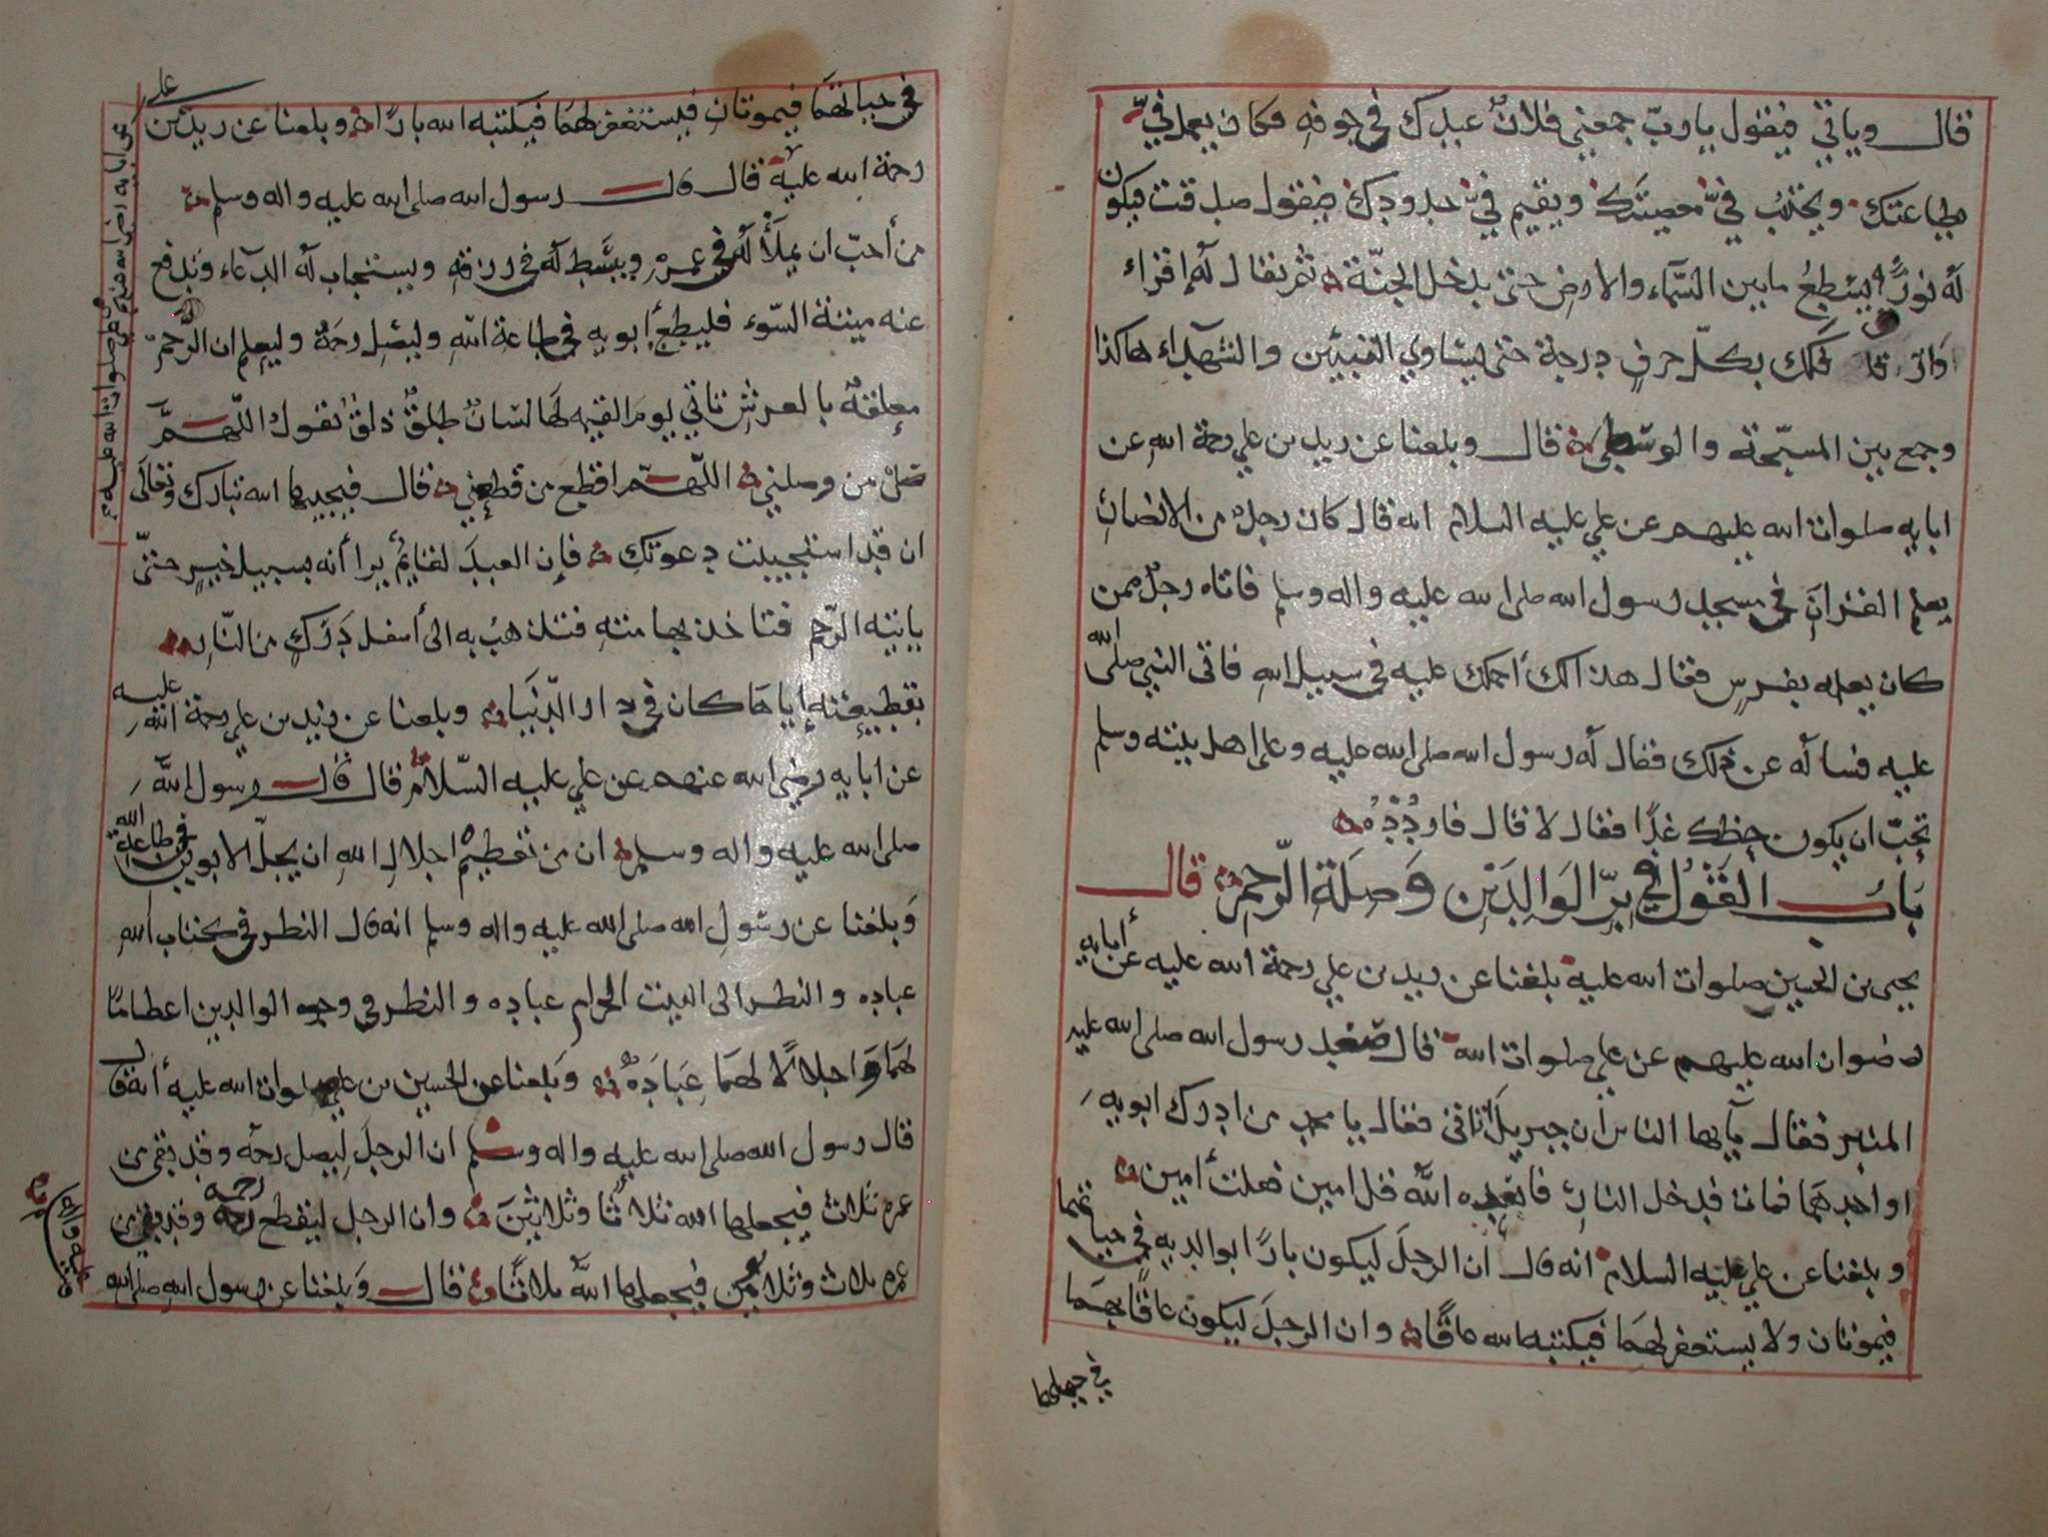 قال وياتي فيقول يا رب جمعني فلان عبدك في جوفه فكان يعمل فيّ
بطاعتك ويجتنب فيّ معصيتك ويقيم فيّ حدودك فيقول صدقت فيكون
له نورٌ يسطعُ ما بين السّماء والارض حتى يدخل الجنّة ثم يقال له إقراء
وارق فلك بكلّ حرفٍ درجة حتى يساوي النبيئين والشهداء هاكذا
وجمع بين المسبّحة والوسطى قال وبلغنا عن زيد بن علي رحمة الله عن
ابايه صلوات الله عليهم عن علي عليه السلام انه قال كان رجل من الانصار
يعلم القرانَ في مسجد رسول الله صلى الله عليه واله وسلم فاتاه رجلٌ ممن
كان يعلمه بفرسٍ فقال هذا لك أحملك عليه في سبيل الله فاتى النبي صلى الله
عليه فسأله عن ذلك فقال له رسول الله صلى الله عليه وعلى اهل بيته وسلم
تحبّ ان يكون حظك غدًا فقال لا قال فارْدُدْهُ
بَابُ القَوْل في بِرِّ الوَالِدَيْنِ وَصِلَةِ الرَّحِمِ قال
يحيى بن الحسين صلوات الله عليه بلغنا عن زيد بن علي رحمة الله عليه عن أبايه
رضوان الله عليهم عن علي صلوات الله قال صعد رسول الله صلى الله عليه
المنبر فقال يآيها الناس ان جبريل أتاني فقال يا محمد من ادرك ابويه
او احدهما فمات فدخل النار فابعده الله قل امين فقلت أمين
وبلغنا عن علي عليه السلام انه قال ان الرجلَ ليكون بارًا بوالديه في حياتهما
فيموتان ولا يستغفر لهما فيكتبه الله عاقًا وان الرجلَ ليكون عاقًا بهما
في حياتهما
في حياتهما فيموتان فيستغفر لهما فيكتبه الله بارًا وبلغنا عن زيد بن علي
رحمة الله عليه قال قال رسول الله صلى الله عليه واله وسلم
عن ابايه رضي الله عنهم عن علي صلوات الله عليه
من أحبّ ان يملأ له في عمره ويبسَط له في رزقهِ ويستجاب له الدعاء وتدفع
عنه ميتة السّوء فليطع أبويه في طاعة الله وليصل رحمهُ وليعلم ان الرَّحم
معلقةٌ بالعرش تاتي يوم القيمه لها لسانٌ طلقٌ ذلقٌ تقول اللّهمَّ
صل من وصلني اللّهمّ اقطع من قطعني قال فيجيبها الله تبارك وتعالى
ان قد استجيبت دعوتك فإن العبدَ لقايمٌ يرا أنه بسبيل خيرٍ حتىّ
ياتيه الرّحم فتاخذ بهامته فتذهب به الى أسفل دَرَكٍ من النّار
بقطيعته إياها كان في دار الدّنيا وبلغنا عن زيد بن علي رحمة الله عليه
عن ابايه رضي الله عنهم عن علي عليه السّلام قال قال رسول الله
صلى الله عليه واله وسلم ان من تعظيم اجلال الله ان يجلّ الابوين في طاعة الله
وَبلغنا عن رسُول الله صلى الله عليه واله وسلم انه قال النظر في كتاب الله
عباده والنظر الى البيت الحرام عباده والنظر في وجوه الوالدين اعظامًا
لهما وَاجلالًا لهما عِبَادَةٌ وبَلغنا عن الحسين بن علي صلوات الله عليه أنه قال
قال رسول الله صلى الله عليه واله وسلم ان الرجلَ ليصل رحمه وقد بقي من
عمره ثلاث فيجعلها الله ثلاثًا وثلاثينَ وان الرجل ليقطع رحمه وقد بقي من
عمره ثلاث وثلاثون فيجعلها اللهُ ثلاثًا قال وَبلغنا عن رسول اللهِ صلى الله
عليه واله